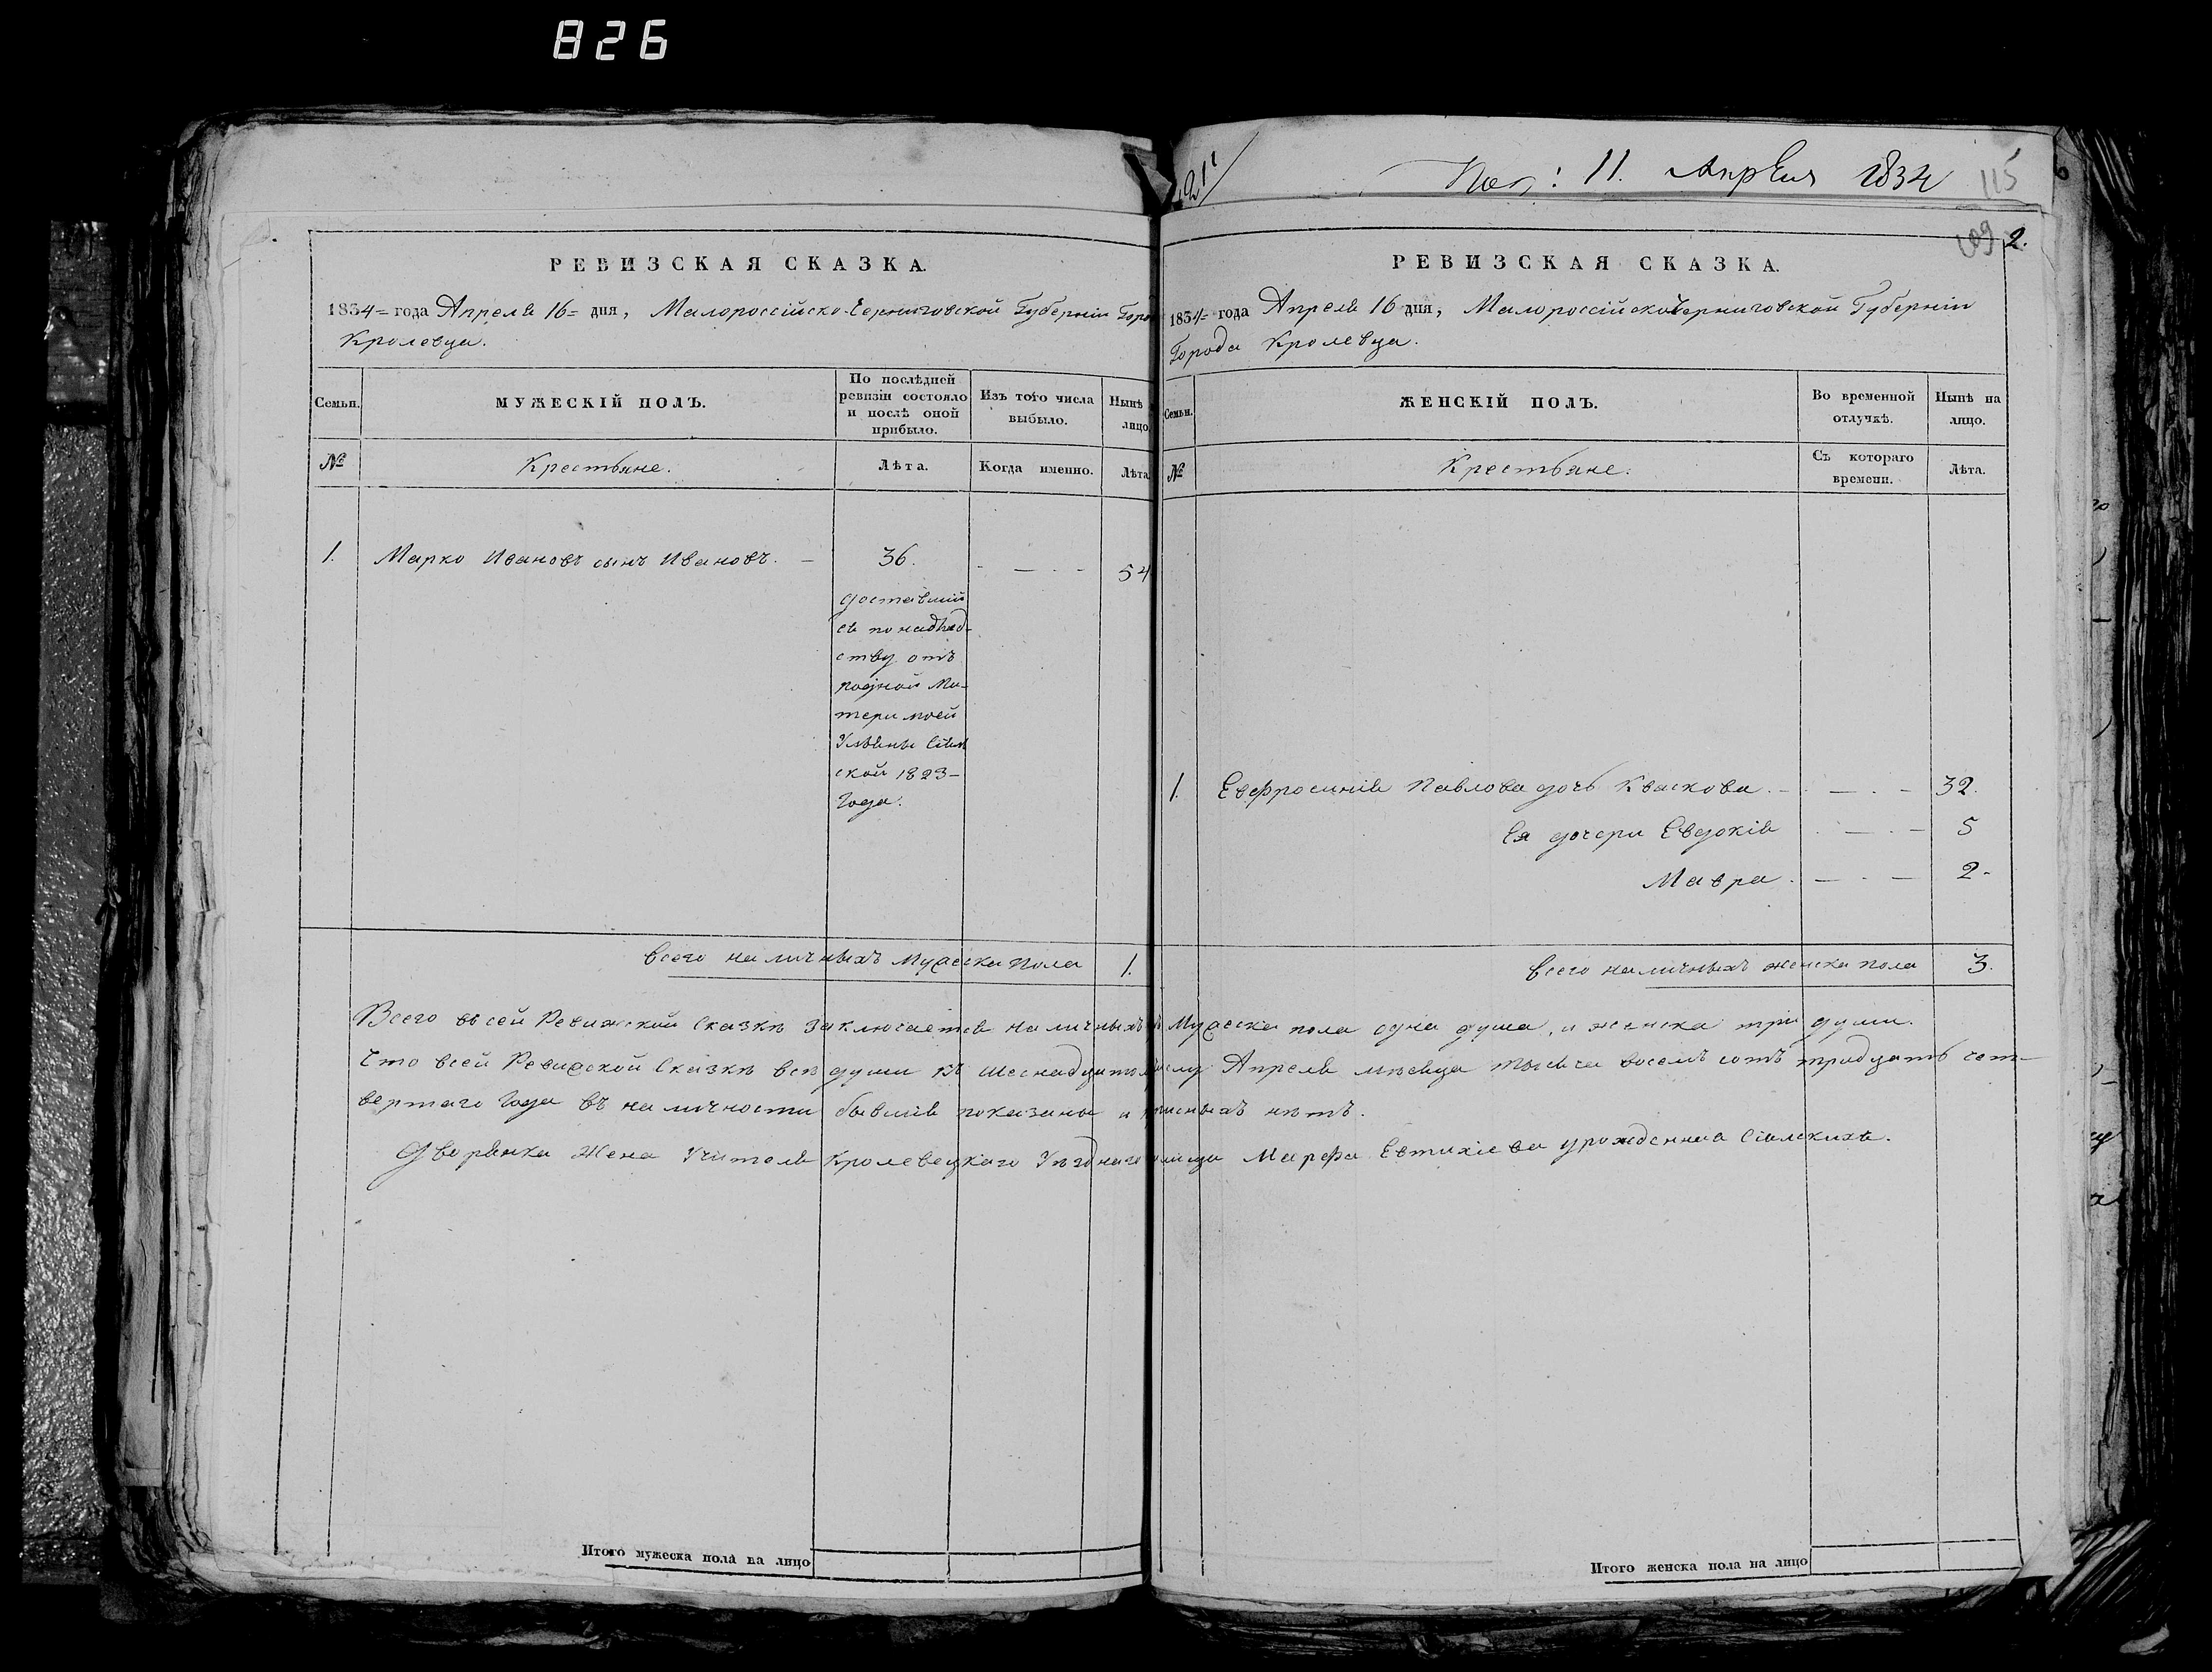 826
РЕВИЗСКАЯ СКАЗКА.
1834 = года Апреля 16 = дня, Малороссійско-Черниговской Губерніи Горо
Кролевца.
Семьи.
МУЖЕСКІЙ ПОЛЪ.
По послѣдней
ревизіи состояло
и послѣ оной
прибыло.
Изъ того числа
выбыло.
Нынѣ
лицо
№
Крестьяне.
Лѣта.
Когда именно.
Лѣта
1. Марко Ивановъ сынъ Ивановъ. — 36. — 54
доставший
ся по
ству отъ
родной Ма-
тери моей
Ульяны
ской 1823 –
Года.
Всего наличныхъ мужеска пола 1.
11. Апреля 1834
115
109
2.
РЕВИЗСКАЯ СКАЗКА.
1834 = года Апреля 16 дня, Малороссійской Черниговской Губерніи
Города Кролевца.
Семьи.
ЖЕНСКІЙ ПОЛЪ.
Во временной
отлучкѣ.
Нынѣ на
лицо.
№
Крестьяне.
Съ котораго
времени.
Лѣта.
1. Евфросинія Павлова дочь Кваскова. — 32.
Ея дочери Евдокія — 5
Мавра. — 2 -
Всего наличныхъ женска пола 3.
Всего въ сей Ревижской Сказкѣ заключается наличныхъ Мужеска пола одна душа, и женска три души.
Что всей Ревиской Сказкѣ всѣ души къ Шеснадцатому Апреля мѣсяца тысяча восемъ сотъ тридцать чет-
вертаго Года въ наличности бывшія показаны и нѣтъ.
Дворянка Жена Учителя Кролевецкаго Уѣзднаго Марфа Евтихіева урожденна Сіялскихъ.
Итого мужеска пола на лицо
Итого женска пола на лицо